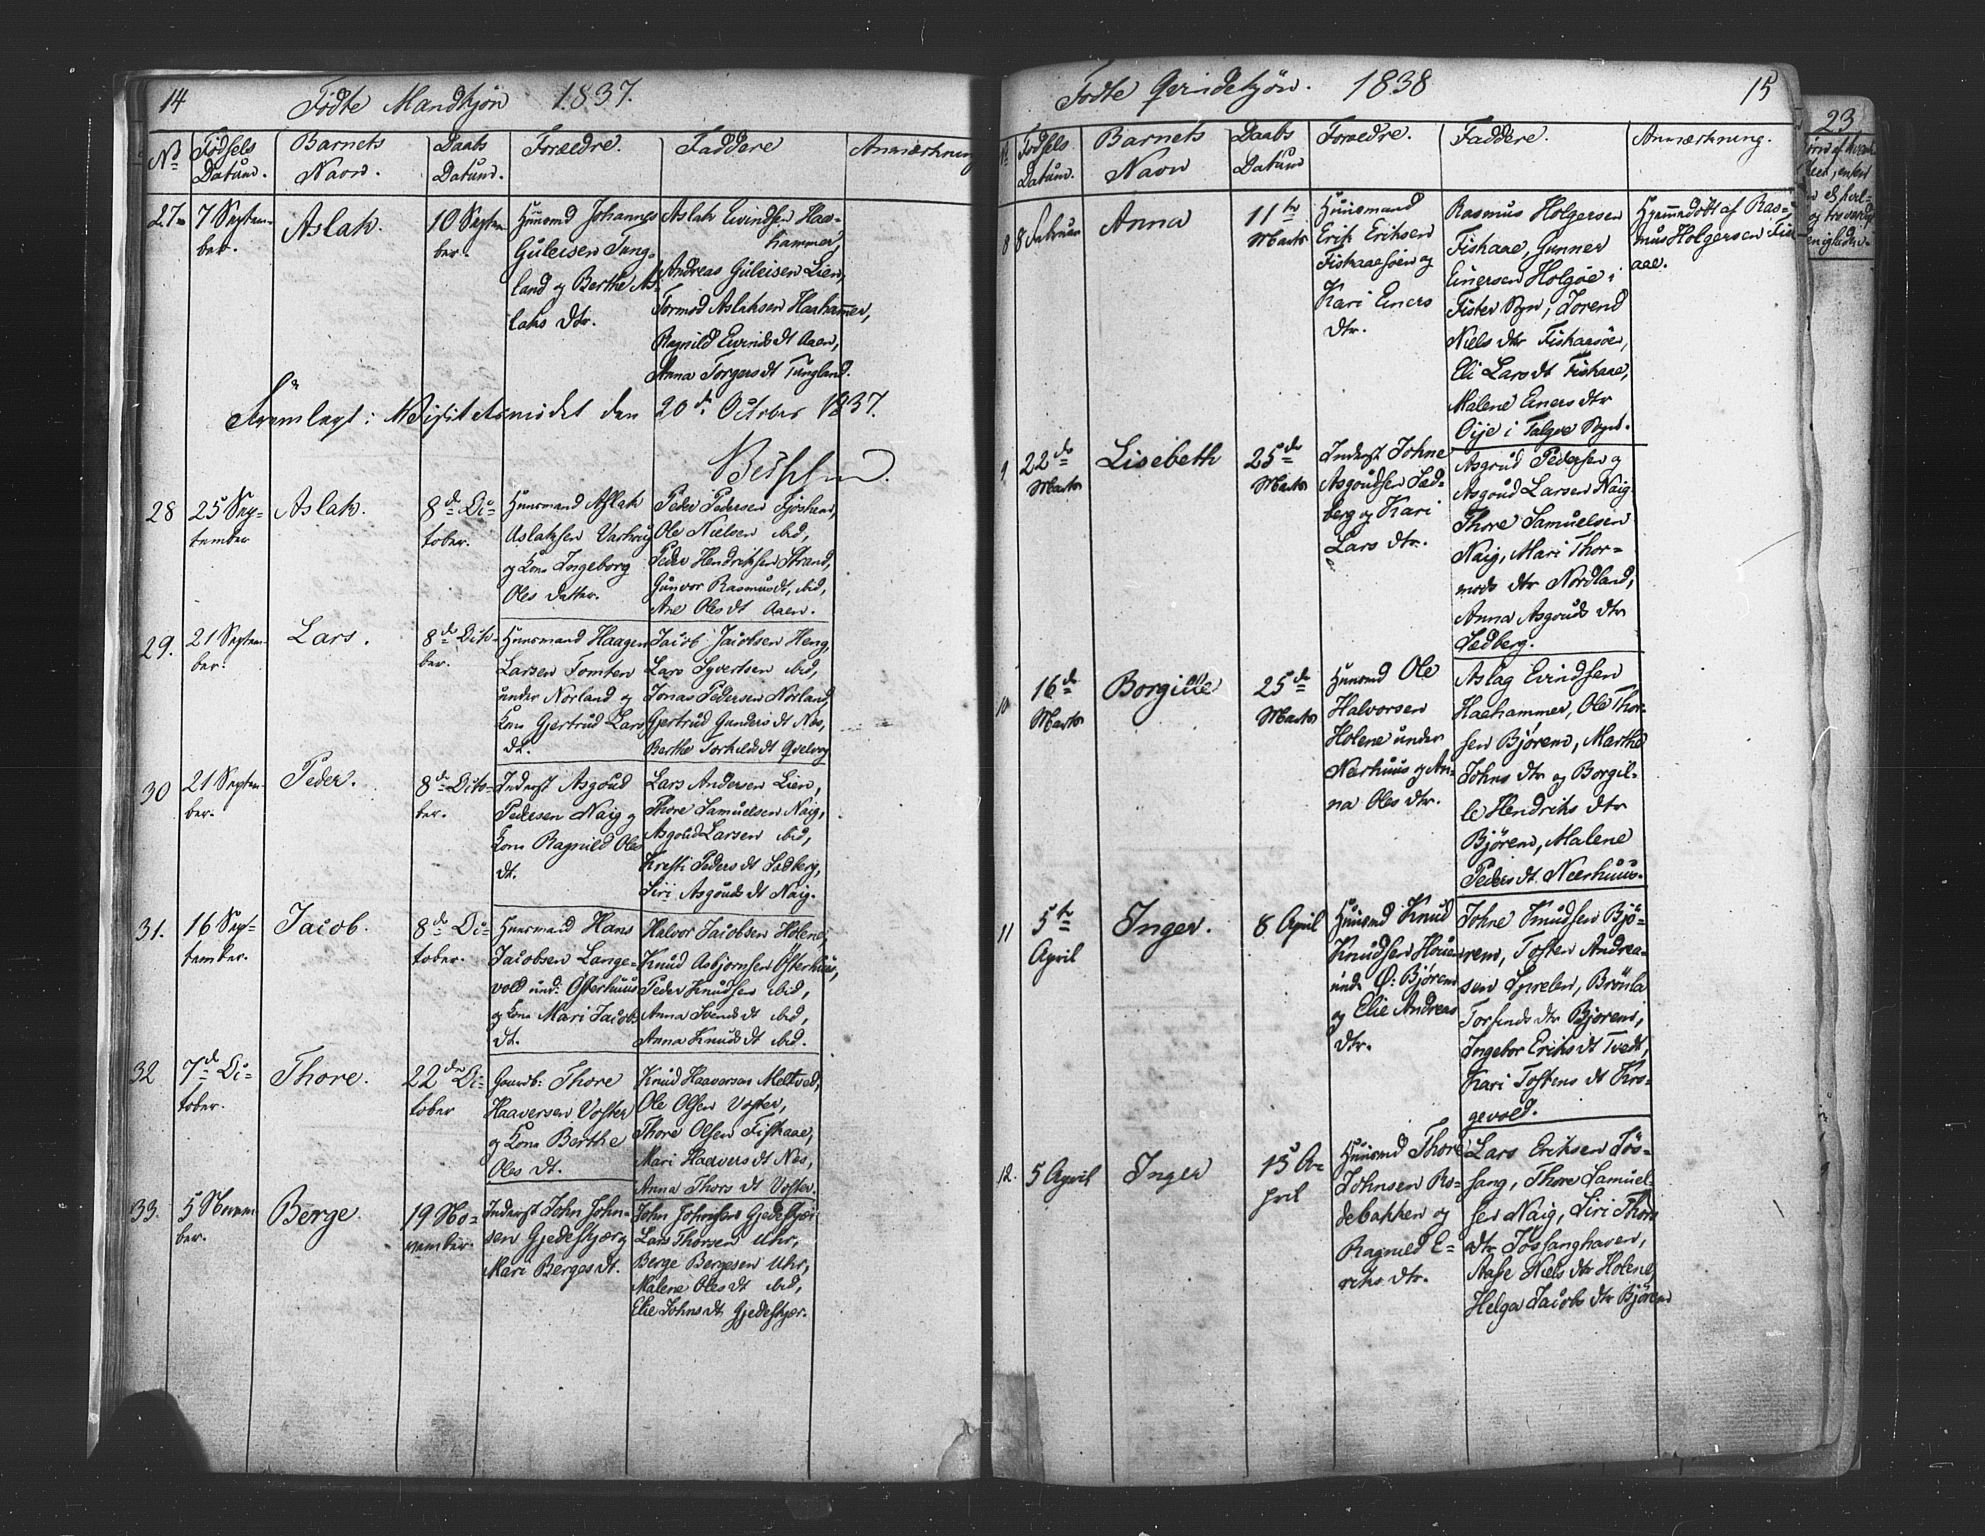 14
Fødte Mandkjøn 1837.
No
Fødsels
Datum.
Barnets
Navn.
Daabs
Datum.
Forældre.
Faddere
Anmærkning
27
7 Septem-
ber.
Aslak.
10 Septem-
ber.
Huusmd Johannes
Guleisen Tung-
land og Berthe As-
laks dtr.
Aslak Eivindsen Haa-
hammer,
Andreas Guleisen Lien,
Tormod Aslaksen Haahammer,
Ragnild Eivinds dt Aaen,
Anna Torgers dt Tungland.
Fremlagt i Visitatsmødet den 20de October 1837.
28
25 Sep-
tember
Aslak.
8de Oc-
tober.
Huusmand Aslak
Aslaksen
og Kone Ingeborg
Oles datter.
Peder Pedersen Fjoshuus,
Ole Nielsen ibid,
Peder Hendriksen Strand,
Gunvor Rasmus dt, ibid,
Ane Oles dt Aaen.
29.
21 Septem-
ber.
Lars.
8de Octo-
ber.
Huusmand Haagen
Larsen Tomten
under Norland og
Kone Gjertrud Lars
dt.
Jacob Jacobsen Heng,
Lars Syvertsen ibid,
Jonas Pedersen Norland,
Gjertrud Gunders dt Nes,
Berthe Torkilds dt Qvelvog
30
21 Septem-
ber.
Peder.
8de Octo-
ber.
Inderst Asgoud
Pedersen Naig og
Kone Ragnild Oles
dt.
Lars Andersen Lien,
Thore Samuelsen Naig,
Asgoud Larsen ibid,
Kresti Peders dt Sadberg,
Siri Asgouds dt Naig.
31.
16 Sep-
tember.
Jacob.
8de Oc-
tober.
Huusmand Hans
Jacobsen Lange-
vold und: Østerhuus
og Kone Mari Jacobs
dt.
Halvor Jacobsen Holene,
Knud Asbjørnsen Østerhuus,
Peder Knudsen ibid,
Anna Svends dt ibid,
Anna Knuds dt ibid.
32
7de Oc-
tober.
Thore.
22de Oc-
tober
Gaardb: Thore
Haaversen Voster
og Kone Berthe
Oles dt.
Knud Haaversen Meltved,
Ole Olsen Voster,
Thore Olsen Fiskaae,
Mari Haavers dt Nes,
Anna Thors dt Voster.
33.
5 Novem-
ber.
Berge.
19 No-
vember.
Inderst John John-
sen Gjedeskjær og
Mari Berges dt.
John Johnsen Gjedeskjær
Lars Thorsen Uhr,
Berge Bergesen Uhr,
Malene Oles dt ibid,
Elie Johns dt Gjedeskjær.
Fødte Qvindekjøn. 1838
15
No
Fødsels
Datum.
Barnets
Navn
Daabs
Datum
Forældre.
Faddere.
Anmærkning.
8
8 Februar
Anna
11te
Marts
Huusmand
Erik Eriksen
Fiskaaesøen og
Kari Einers
dtr.
Rasmus Holgersen
Fiskaae, Gunner
Einersen Holgøe i
Fister Sogn, Jorend
Niels dtr Fiskaasøen,
Eli Lars dt Fiskaae,
Malene Einers dtr
Oije i Talgøe Sogn.
Hjemmedøbt af Ras-
mus Holgersen Fisk-
aae.
9
22de
Marts
Lisebeth
25de
Marts
Inderst Johne
Asgoudsen Sad-
berg og Kari
Lars dtr.
Asgoud Pedersen og
Asgoud Larsen Naig
Thore Samuelsen
Naig, Mari Thor-
mods dtr Nordland,
Anna Asgouds dtr
Sadberg.
10
16de
Marts
Borgille
25de
Marts
Huusmd Ole
Halvorsen
Holene under
Nærhuus og An-
na Oles dtr.
Aslag Eivindsen
Haehammer, Ole Thor-
sen Bjørem, Marthe
Johns dtr og Borgil-
le Hendriks dtr
Bjørem, Malene
Peders dt Nærhuus.
11
5te
April
Inger.
8 April
Huusmd Knud
Knudsen Houen
und: Ø: Bjørem
og Elie Andreas
dtr.
Johne Knudsen Bjø-
rem, Tosten Andrea-
sen, Brønla
Torfinds dtr Bjørem,
Ingebor Eriks dt Tvedt,
Kari Tostens dt Kro-
gevold.
12.
5 April
Inger
15 A-
pril
Huusmd Thore
Johnsen Ro-
debakken og
Ragnild E-
riks dtr.
Lars Eriksen Jøs-
sang, Thore Samuel-
sen Naig, Siri Thors
dtr Jøssanghaven,
Aase Niels dtr Holene,
Helga Jacobs dtr Bjørem
23